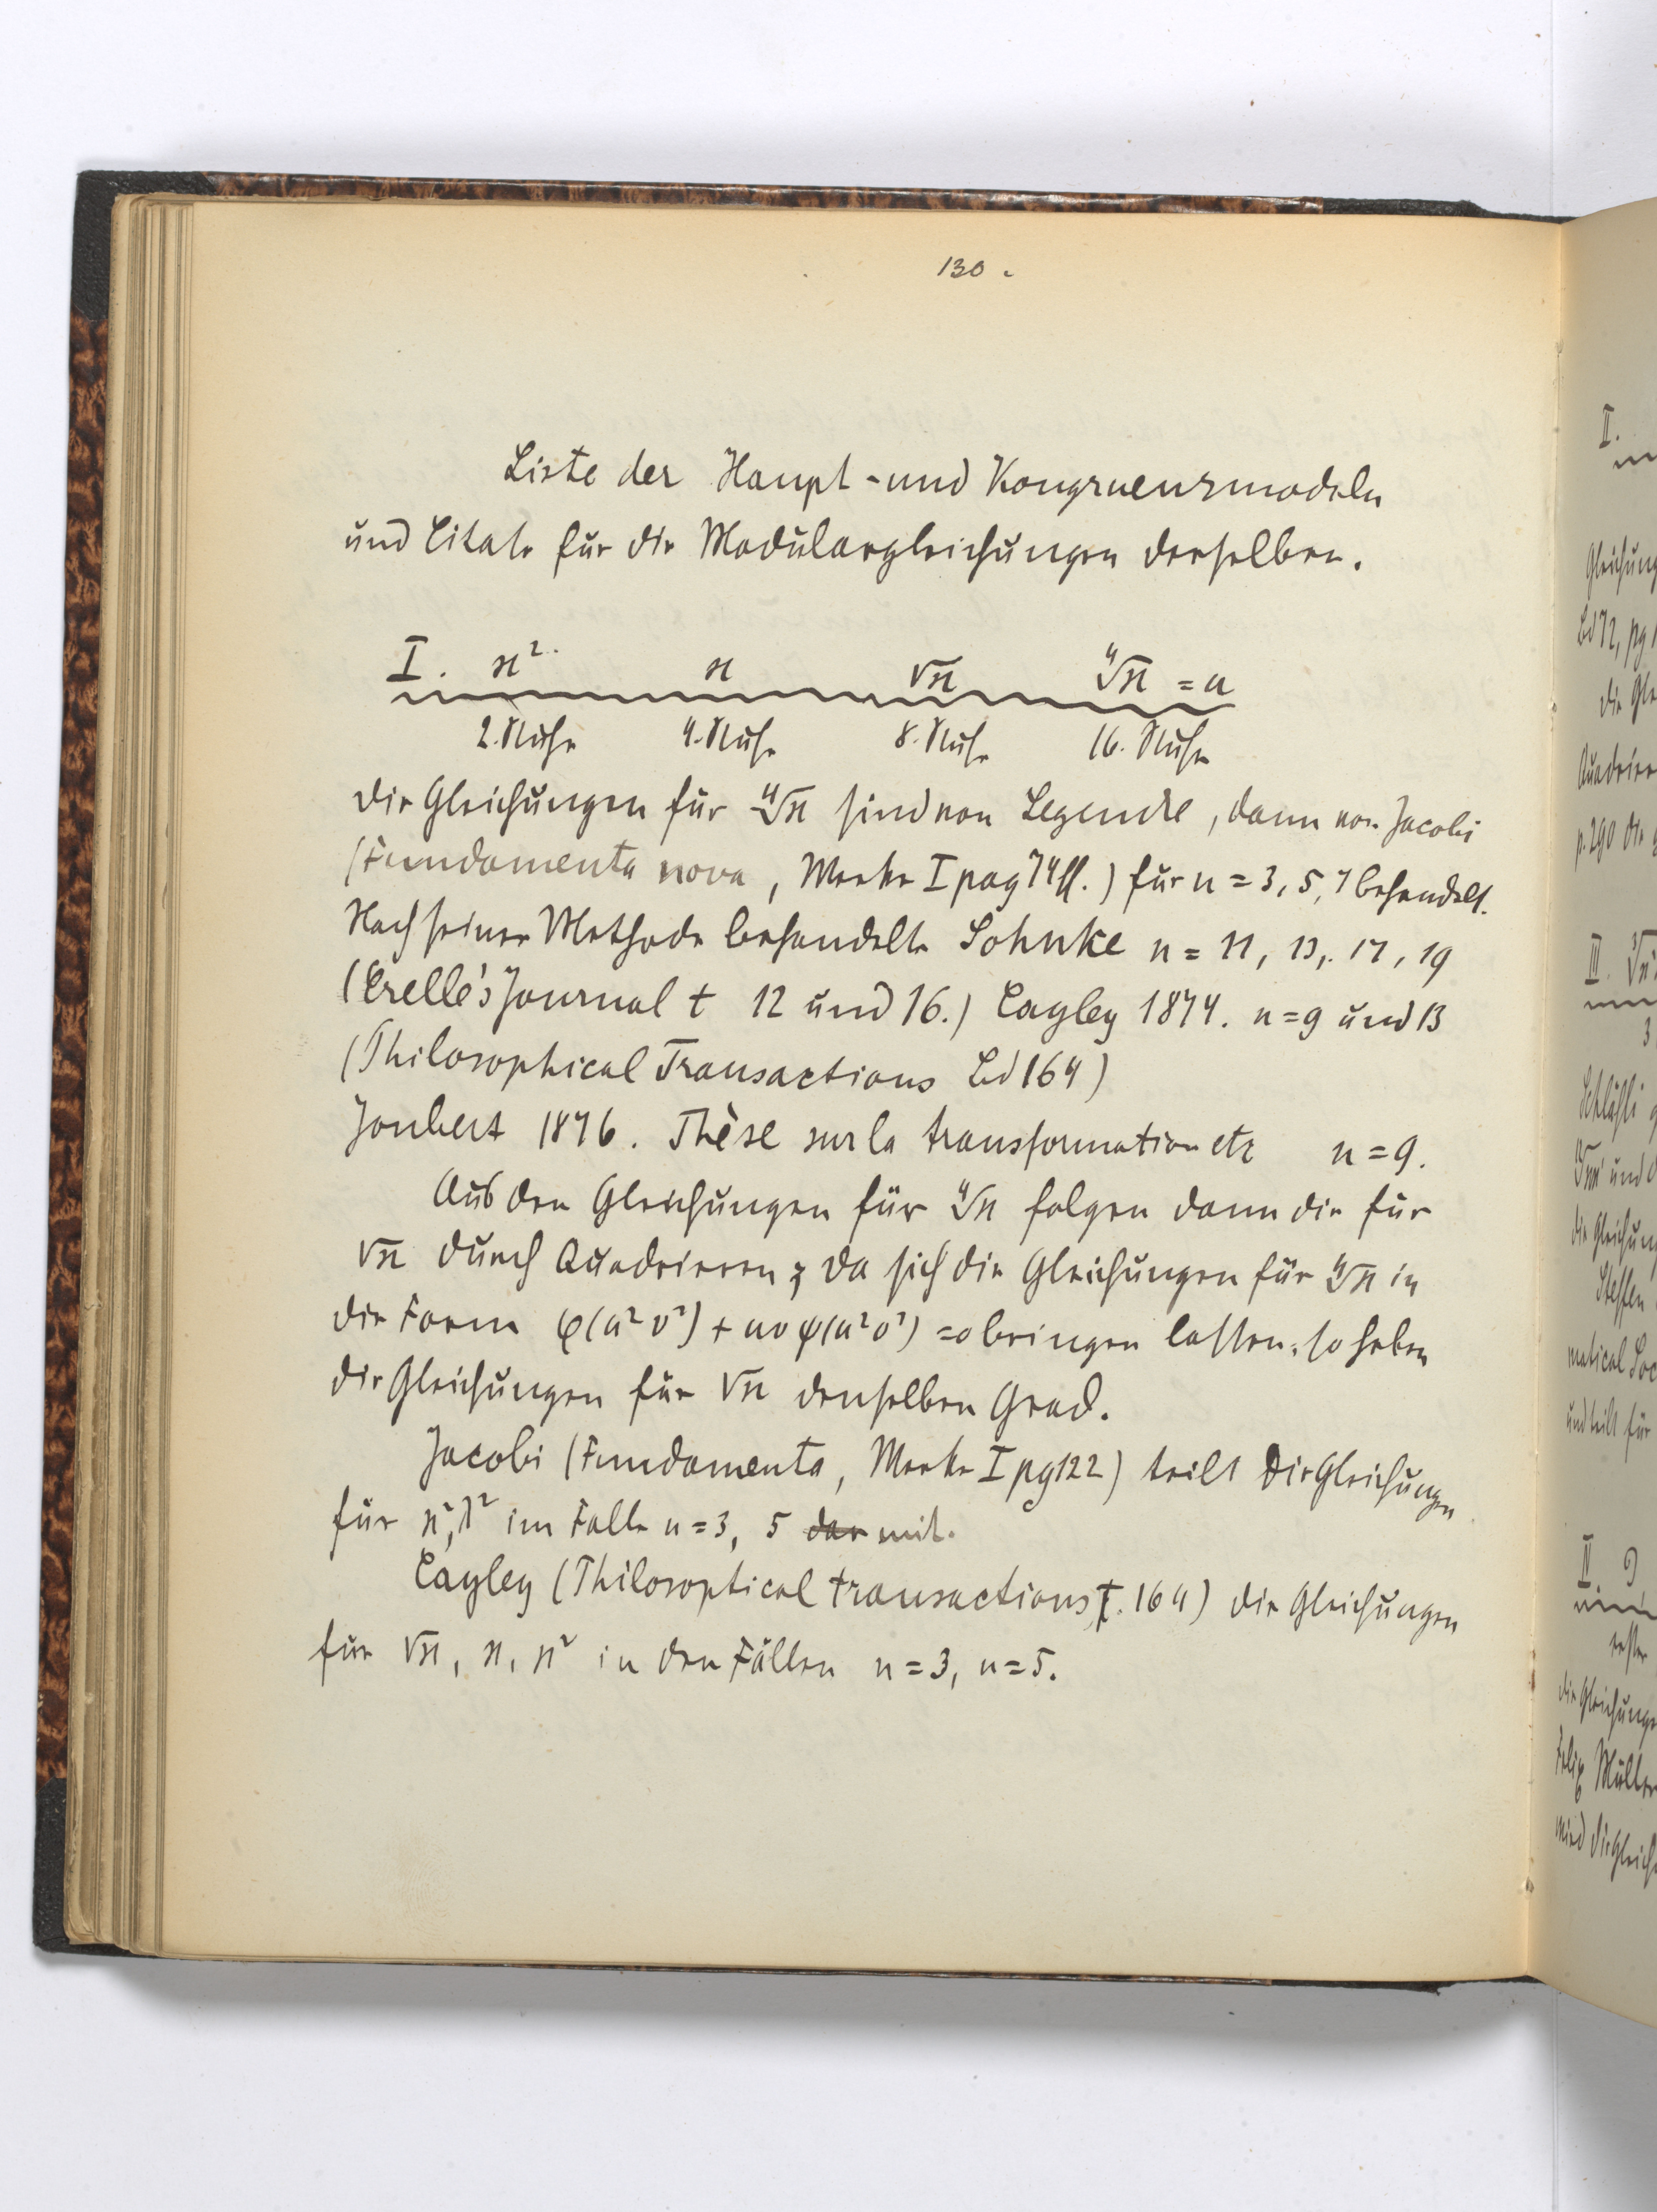 130.
Liste der Haupt- und Kongruenzmoduln
und Citate für die Modulargleichungen derselben.
I. ϰ². ϰ √ϰ ∜ϰ = u
2. Stufe 4. Stufe 8. Stufe 16. Stufe
Die Gleichungen für ∜ϰ sind von Legendre, dann von Jacobi
(Fundamenta nova, Werke I pag 74 ff.) für n = 3, 5, 7 behandelt.
Nach seiner Methode behandelte Sohnke n = 11, 13, 17, 19
(Crelle's Journal t 12 und 16.) Cayley 1874. n = 9 und 13
(Philosophical Transactions Bd 164)
Joubert 1876. Thèse sur la transformation etc n = 9.
Aus den Gleichungen für ∜ϰ folgen dann die für
√ϰ durch Quadrieren; da sich die Gleichungen für ∜ϰ in
die Form φ(u² v²) + uv ψ(u² v²) = 0 bringen lassen, so haben
die Gleichungen für √ϰ denselben Grad.
Jacobi (Fundamenta, Werke I pg 122) teilt die Gleichungen
für ϰ², λ² im Falle n = 3, 5 dar mit.
Cayley (Philosoptical transactions, T. 164) die Gleichungen
für √ϰ, ϰ, ϰ² in den Fällen n = 3, n = 5.
II.
Gleichung
Bd 72, pg
die Gle
Quadrier
p. 290 die
II.
3
Schläfli
und
die Gleichun
matical Soc
und teilt für
die Gleichunge
Felix Müller
wird die Gleich